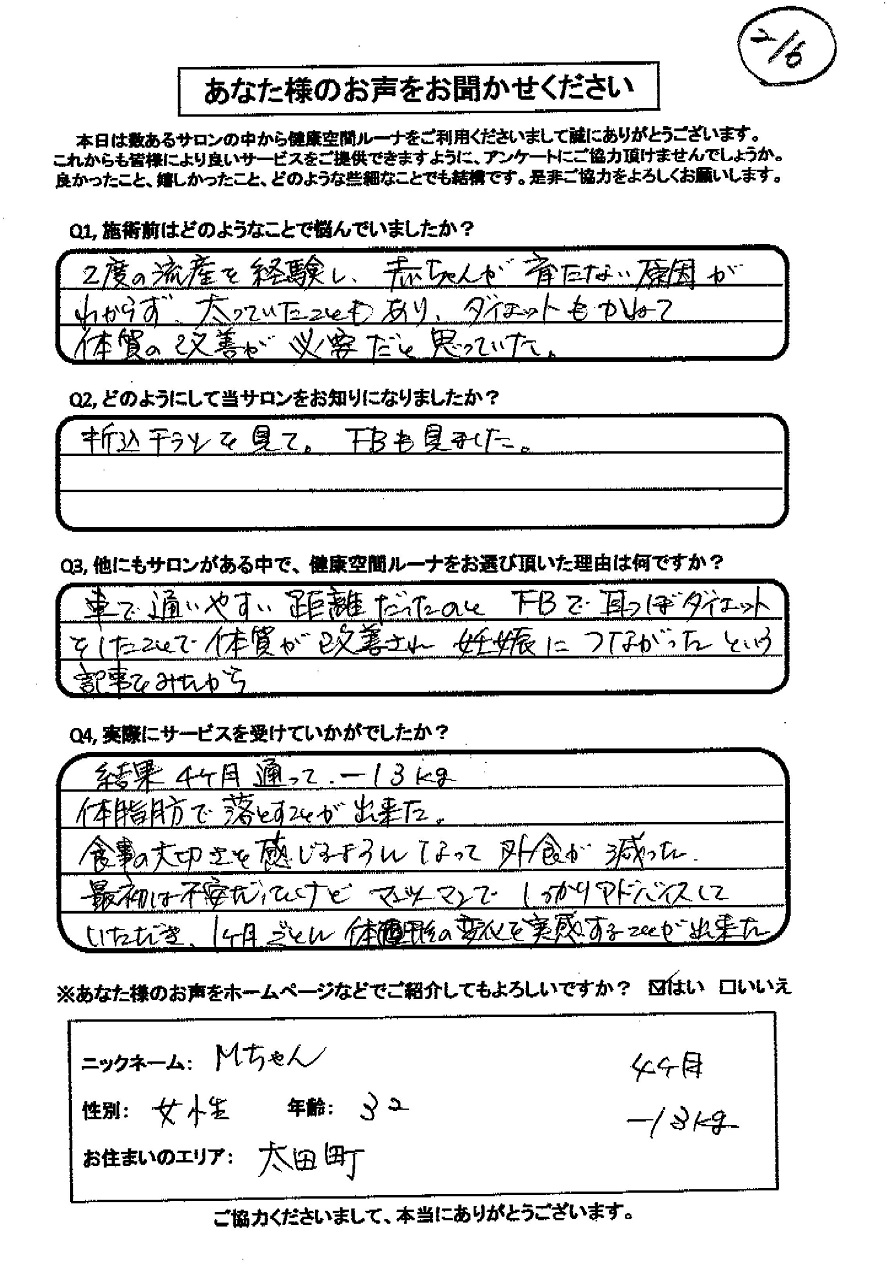 2/6
あなた様のお声をお聞かせください
本日は数あるサロンの中から健康空間ルーナをご利用くださいまして誠にありがとうございます。
これからも皆様により良いサービスをご提供できますように、アンケートにご協力頂けませんでしょうか。
良かったこと、嬉しかったこと、どのような些細なことでも結構です。是非ご協力をよろしくお願いします。
Q1, 施術前はどのようなことで悩んでいましたか？
2度の流産を経験し、赤ちゃんが育たない原因が
わからず、太っていたこともあり、ダイエットもかねて
体質の改善が必要だと思っていた。
Q2, どのようにして当サロンをお知りになりましたか？
折込チラシを見て。FBも見ました。
Q3, 他にもサロンがある中で、健康空間ルーナをお選び頂いた理由は何ですか？
車で通いやすい距離だったのと FBで耳つぼダイエット
をしたことで体質が改善され 妊娠につながったという
記事をみたから
Q4, 実際にサービスを受けていかがでしたか？
結果4ヶ月通って、−13kg
体脂肪で落とすことが出来た。
食事の大切さを感じるようになって外食が減った。
最初は不安だったけど マンツーマンでしっかりアドバイスして
いただき、1ヶ月ごとに体形の変化を実感することが出来た
※あなた様のお声をホームページなどでご紹介してもよろしいですか？ ☑はい □いいえ
ニックネーム： Mちゃん
4ヶ月
性別： 女性 年齢： 32
−13kg
お住まいのエリア： 太田町
ご協力くださいまして、本当にありがとうございます。